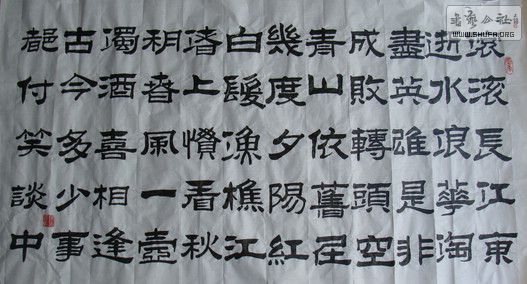 滚滚長江東
逝水浪華淘
盡英雄是非
成敗轉頭空
青山依舊在
幾度夕陽紅
白髮漁樵江
渚上慣看秋
月春風一壺
濁酒喜相逢
古今多少事
都付笑談中
公社
WWW.SHUFA.ORG